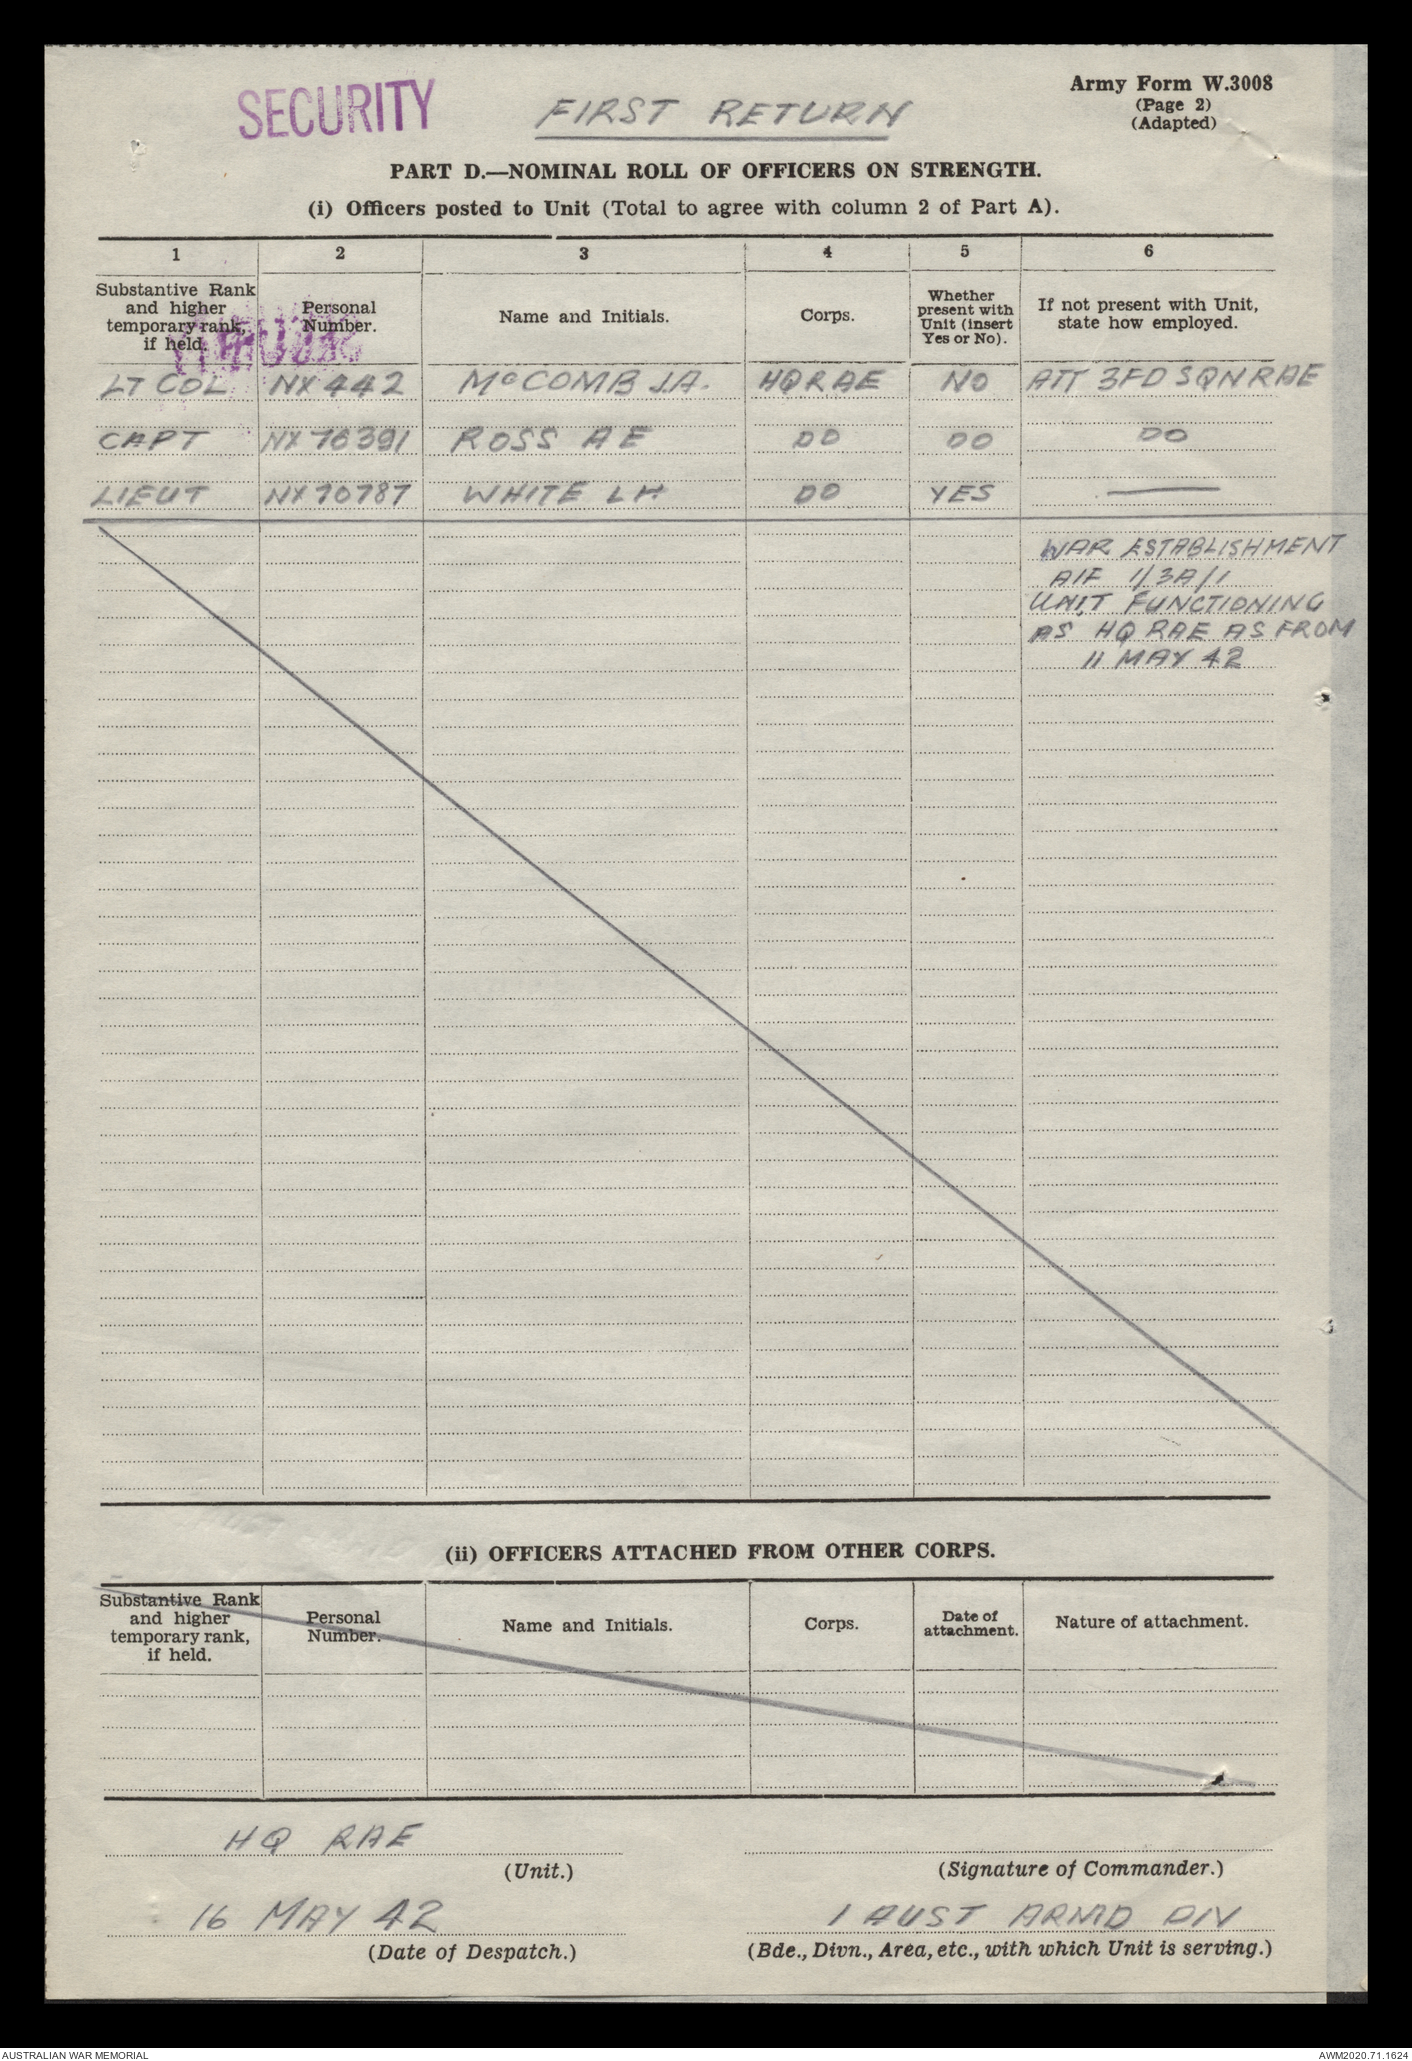 SECURITY
FIRST RETURN
Army Form W.3008
(Page 2)
(Adapted)
PART D.—NOMINAL ROLL OF OFFICERS ON STRENGTH.
(i) Officers posted to Unit (Total to agree with column 2 of Part A).
1 2 3 4 5 6
Substantive Rank and higher temporary rank, if held. Personal Number. Name and Initials. Corps. Whether present with Unit (insert Yes or No). If not present with Unit, state how employed.
SECURITY
LT COL NX 442 McCOMB J.A. HQ RAE NO ATT 3 FD SQN RAE
CAPT NX 76391 ROSS A E DO DO DO
LIEUT NX 70787 WHITE L H DO YES —
WAR ESTABLISHMENT
AIF 1/3A/1
UNIT FUNCTIONING
AS HQ RAE AS FROM
11 MAY 42
(ii) OFFICERS ATTACHED FROM OTHER CORPS.
Substantive Rank and higher temporary rank, if held. Personal Number. Name and Initials. Corps. Date of attachment. Nature of attachment.
HQ RAE
(Unit.)
(Signature of Commander.)
16 MAY 42
(Date of Despatch.)
1 AUST ARMD DIV
(Bde., Divn., Area, etc., with which Unit is serving.)
AUSTRALIAN WAR MEMORIAL
AWM2020.71.1624